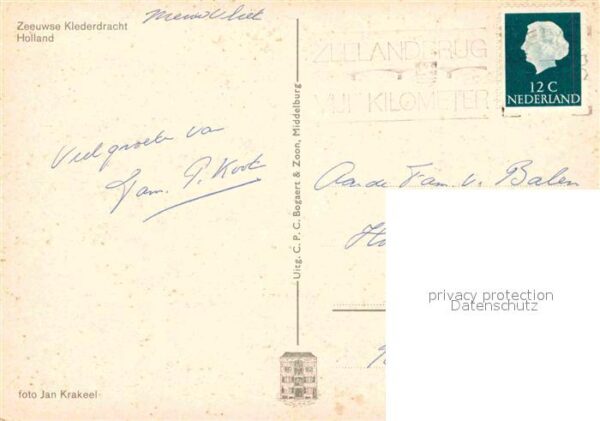 Zeeuwse Klederdracht
Holland
Nieuwvliet
ZEELANDBRUG
VIJF KILOMETER
12 C
NEDERLAND
Veel groeten van
Fam. P. Koot
Uitg. C. P. C. Bogaert & Zoon, Middelburg
Aan de Fam. v. Balen
privacy protection
Datenschutz
foto Jan Krakeel